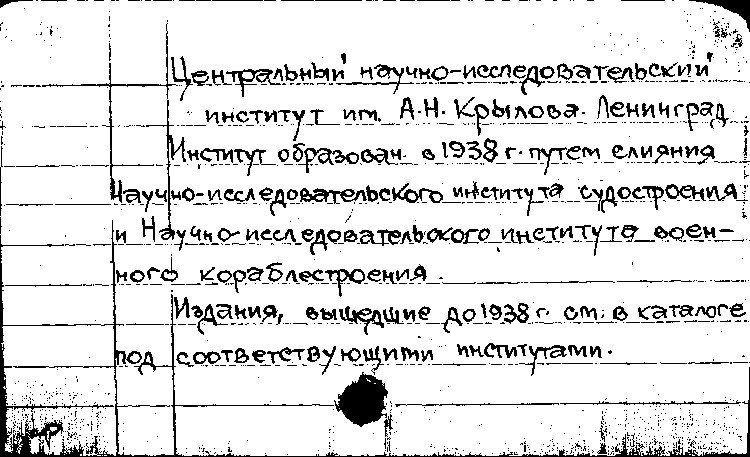 Центральный научно-исследовательский
институт им. А.Н. Крылова. Ленинград
Институт образован в 1938 г. путем слияния
Научно-исследовательского института судостроения
и Научно-исследовательского института воен-
ного кораблестроения.
Издания, вышедшие до 1938 г. см. в каталоге
под соответствующими институтами.